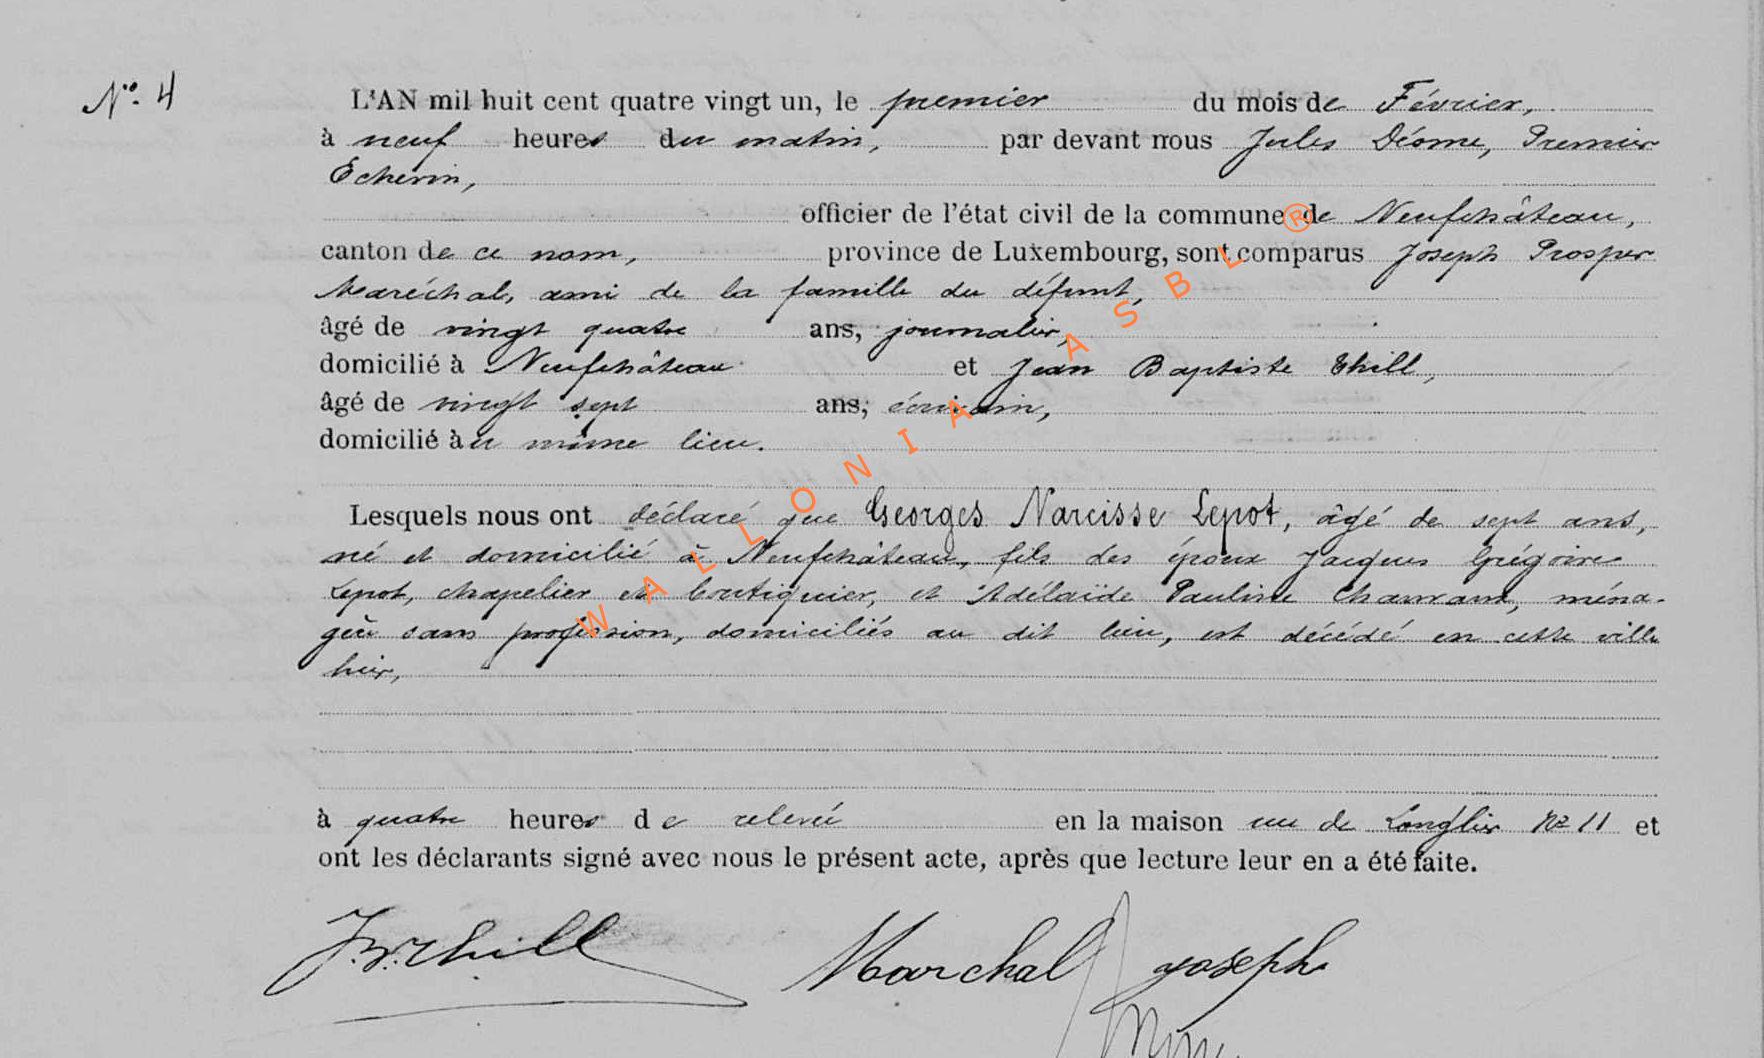 N°. 4
L'AN mil huit cent quatre vingt un, le premier du mois de Février,
à neuf heures du matin, par devant nous Jules Déome, Premier
Echevin,
officier de l'état civil de la commune de Neufchâteau,
canton de ce nom, province de Luxembourg, sont comparus Joseph Prosper
Maréchal, ami de la famille du défunt,
âgé de vingt quatre ans, journalier,
domicilié à Neufchâteau et Jean Baptiste Thill,
âgé de vingt sept ans, écrivain,
domicilié au même lieu.
Lesquels nous ont déclaré que Georges Narcisse Lepot, âgé de sept ans,
né et domicilié à Neufchâteau, fils des époux Jacques Grégoire
Lepot, chapelier et boutiquier, et Adélaïde Pauline, ména-
gère sans profession, domiciliés au dit lieu, est décédé en cette ville
hier,
à quatre heures de relevée en la maison rue de Longlier N° 11 et
ont les déclarants signé avec nous le présent acte, après que lecture leur en a été faite.
J.B. Thill Marchal joseph
WALLONIA ASBL ®